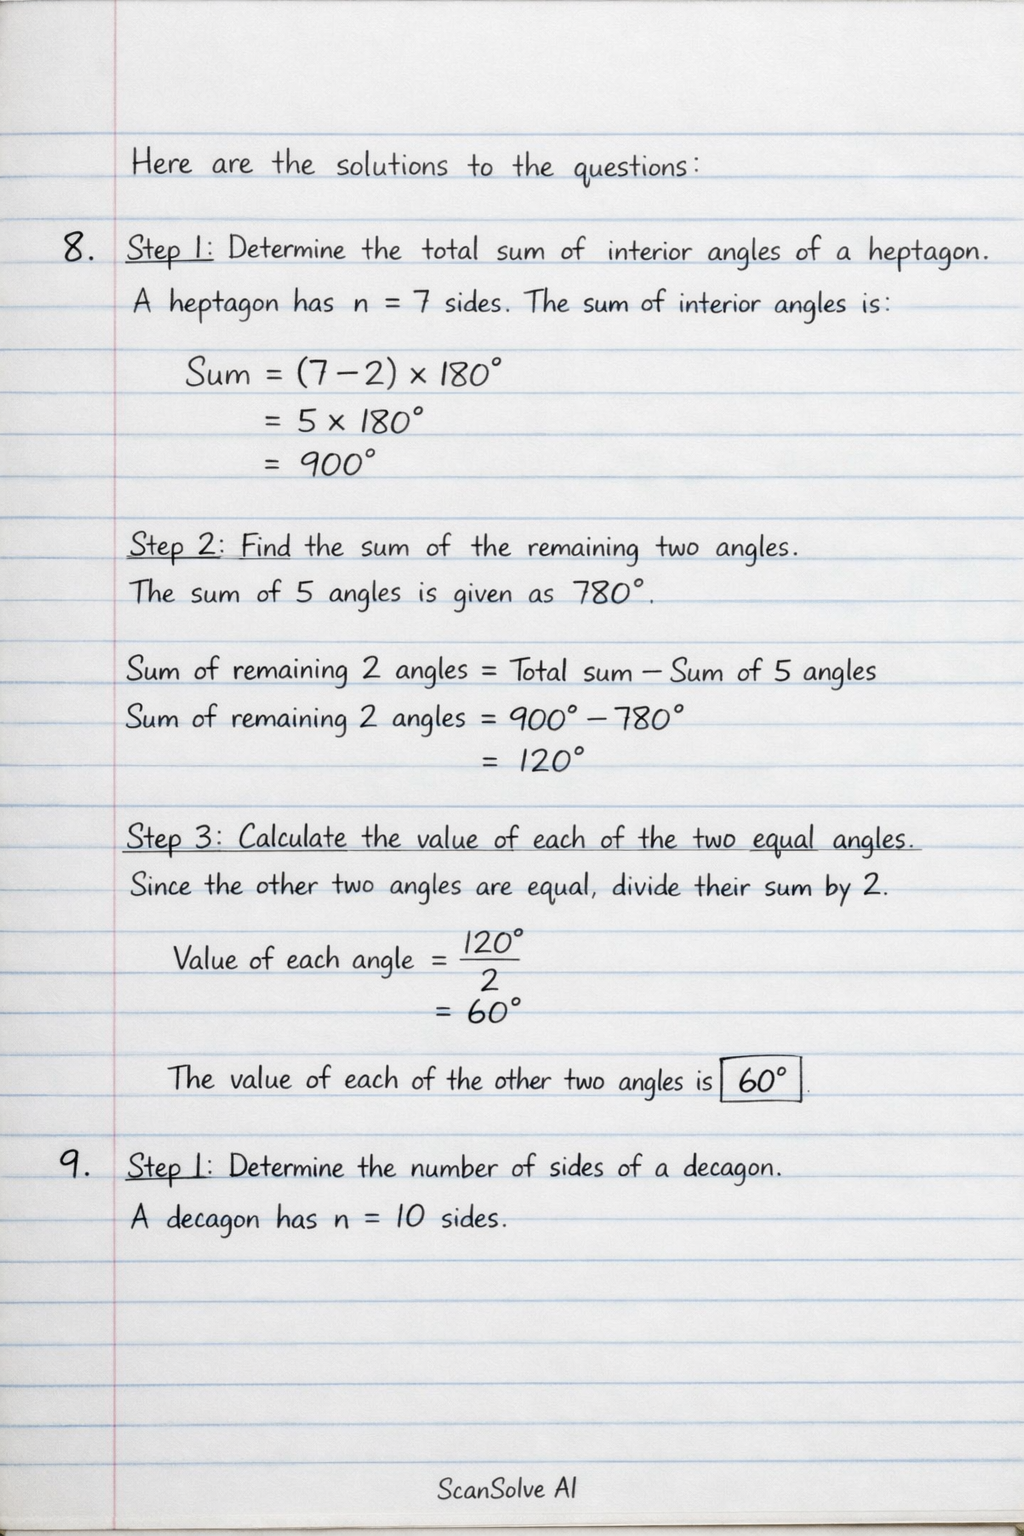 Here are the solutions to the questions:
8. Step 1: Determine the total sum of interior angles of a heptagon.
A heptagon has n = 7 sides. The sum of interior angles is:
Sum = (7 − 2) × 180°
= 5 × 180°
= 900°
Step 2: Find the sum of the remaining two angles.
The sum of 5 angles is given as 780°.
Sum of remaining 2 angles = Total sum − Sum of 5 angles
Sum of remaining 2 angles = 900° − 780°
= 120°
Step 3: Calculate the value of each of the two equal angles.
Since the other two angles are equal, divide their sum by 2.
Value of each angle = 120°/2
= 60°
The value of each of the other two angles is 60°.
9. Step 1: Determine the number of sides of a decagon.
A decagon has n = 10 sides.
ScanSolve AI